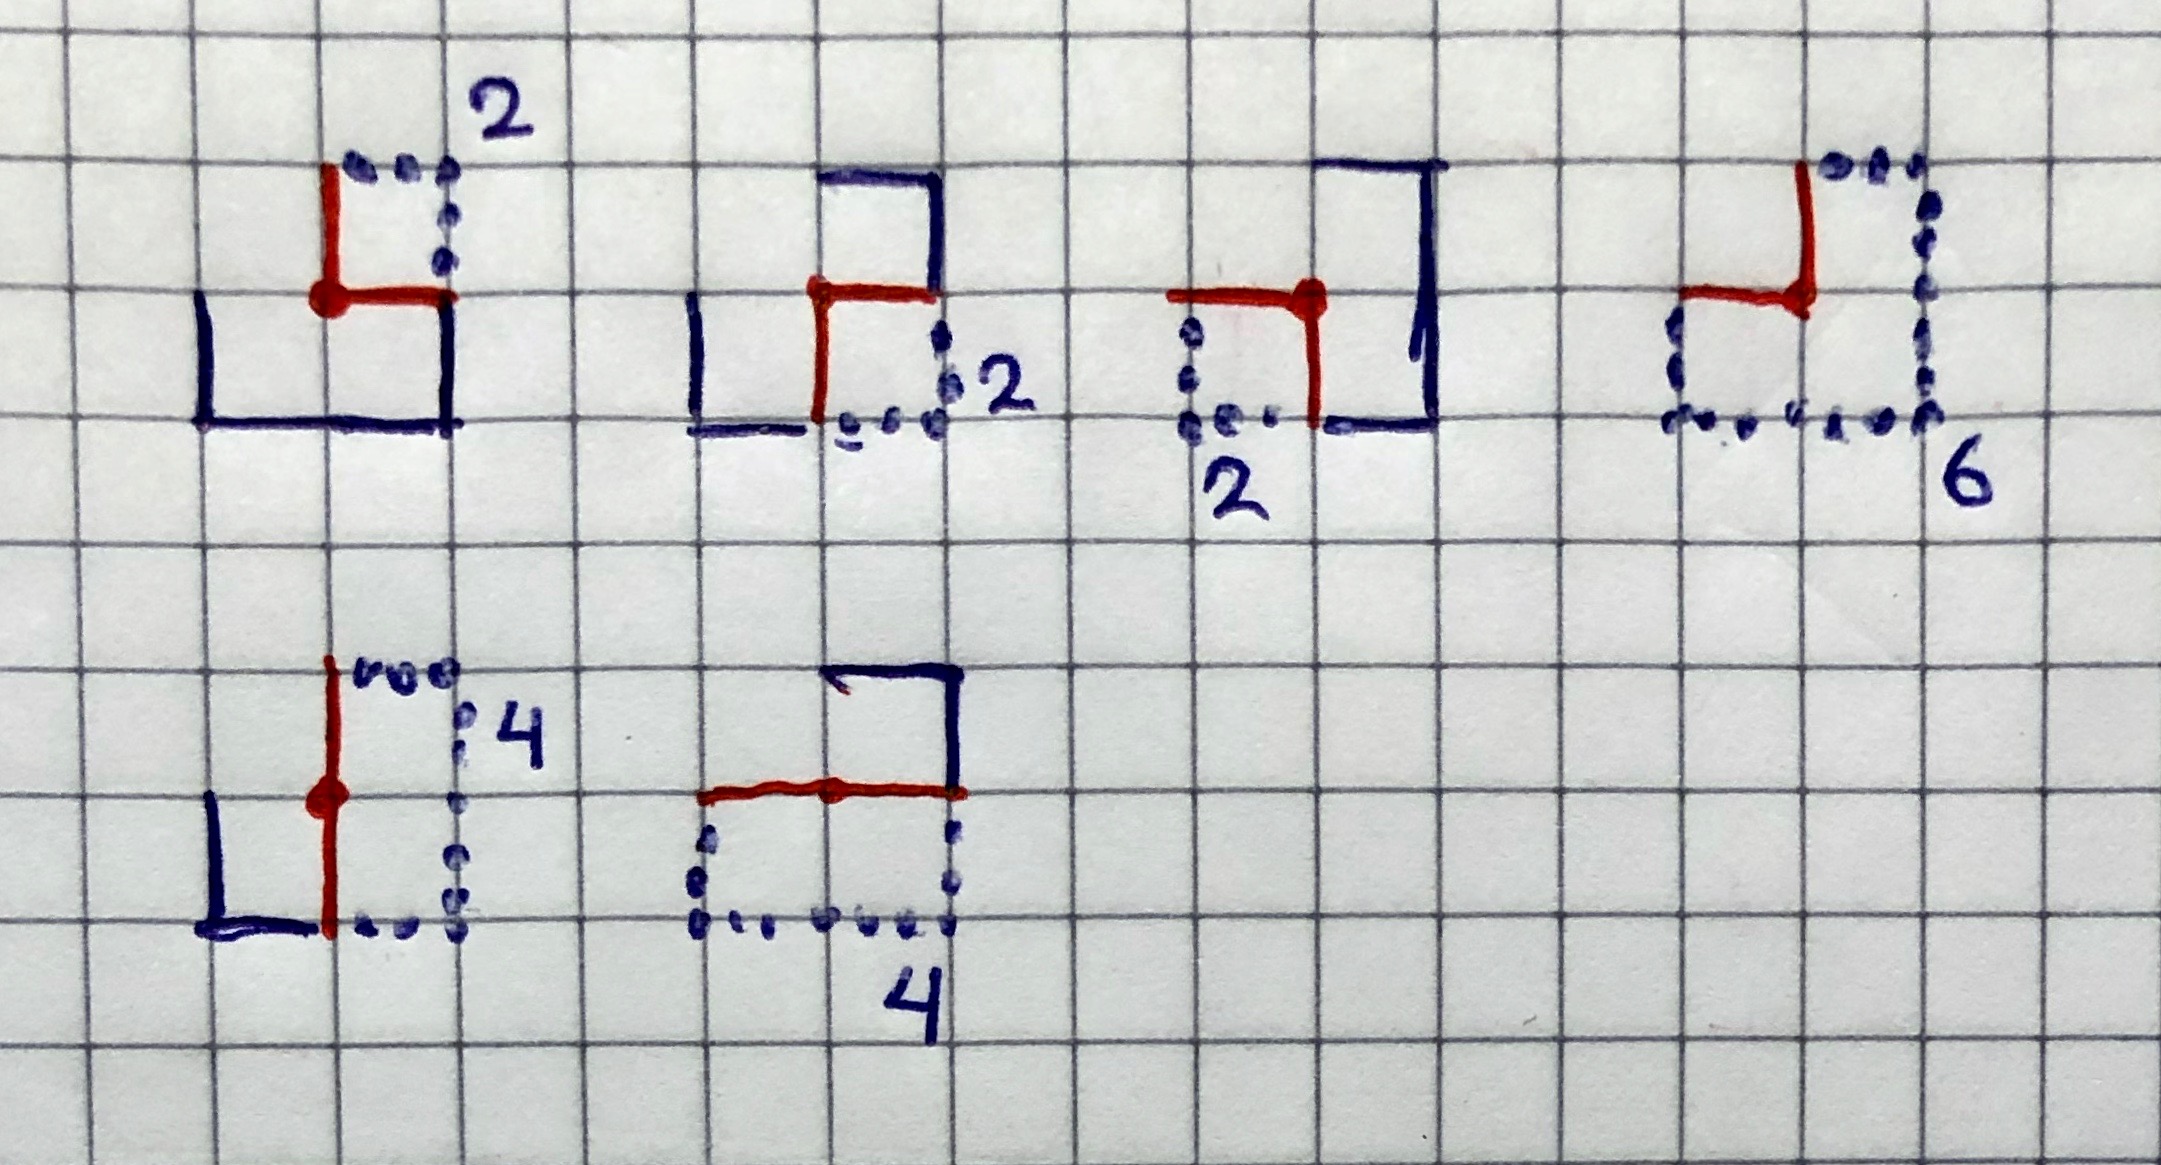 2
2
2
6
4
4